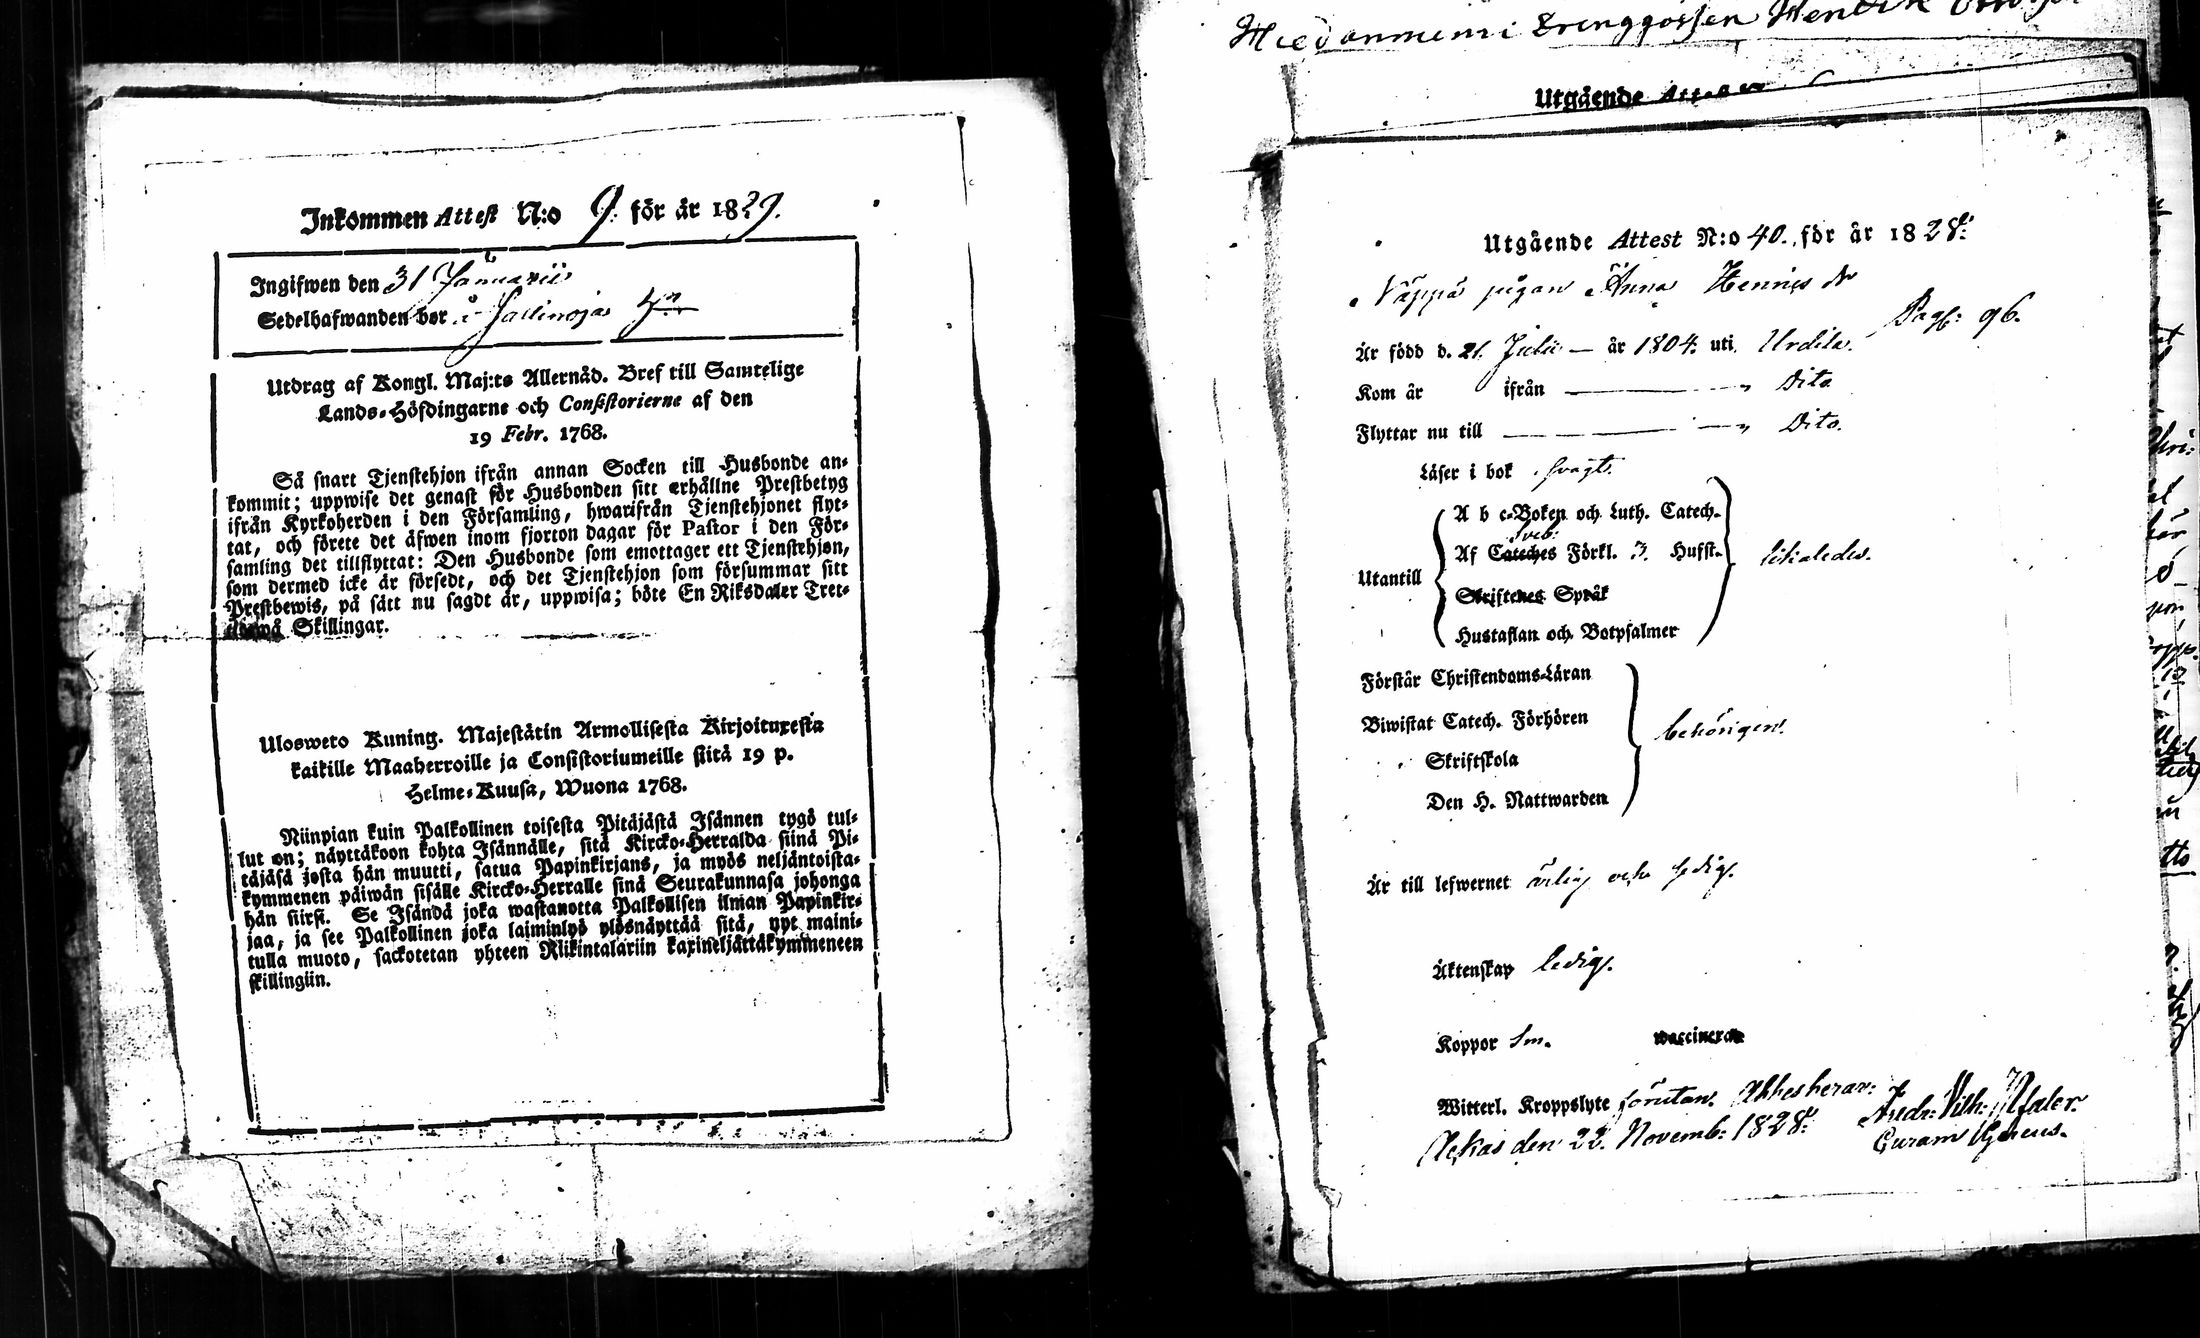 Inkommen Attest N:o 9. för år 1829.
Ingifwen den 31 Januarii
Sedelhafwanden bor i
Utdrag af Kongl. Maj:ts Allernåd. Bref till Samtelige
Lands-Höfdingarne och Consistorierne af den
19 Febr. 1768.
Så snart Tjenstehjon ifrån annan Socken till Husbonde an-
kommit; uppwise det genast för Husbonden sitt erhållne Prestbetyg
ifrån Kyrkoherden i den Församling, hwarifrån Tjenstehjonet flyt-
tat, och förete det äfwen inom fjorton dagar för Pastor i den För-
samling det tillflyttat: Den Husbonde som emottager ett Tjenstehjon,
som dermed icke är försedt, och det Tjenstehjon som försummar sitt
Prestbewis, på sätt nu sagdt är, uppwisa; böte En Riksdaler Tret-
Skillingar.
Ulosweto Kuning. Majestätin Armollisesta Kirjoituxesta
kaikille Maaherroille ja Consistoriumeille siitä 19 p.
Helme-Kuusa, Wuona 1768.
Niinpian kuin Palkollinen toisesta Pitäjästä Isännen tygö tul-
lut on; näyttäkoon kohta Isännälle, sitä Kircko-Herralda siinä Pi-
täjäsä josta hän muutti, satua Papinkirjans, ja myös neljäntoista-
kymmenen päiwän sisälle Kircko-Herralle sinä Seurakunnasa johonga
hän siirsi. Se Isändä joka wastanotta Palkollisen ilman Papinkir-
jaa, ja see Palkollinen joka laiminlyö ylösnäyttää sitä, nyt maini-
tulla muoto, sackotetan yhteen Rlikintalariin kaxineljättäkymmeneen
skillingiin.
Drenggossen Hendrik
Utgående
Utgående Attest N:o 40. för år 1828.
Näppä pigan Anna Henrics dr
Pag: 96.
Är född d. 21. Julii — år 1804. uti Urdila.
Kom år ifrån — " Dito
Flyttar nu till — " Dito.
Läser i bok svagt.
A b c-Boken och Luth. Catech.
Sveb:
Utantill Af Cateches Förkl. 3. Hufst.
Skriftenes Språk
Hustaflan och Botpsalmer
Förstår Christendoms-Läran
Biwistat Catech. Förhören behörigen.
Skriftskola
Den H. Nattwarden
Är till lefwernet ärlig och sedig.
Äktenskap ledig.
Koppor waccinerad
Witterl. Kroppslyte förutan.
den 22. Novemb: 1828.